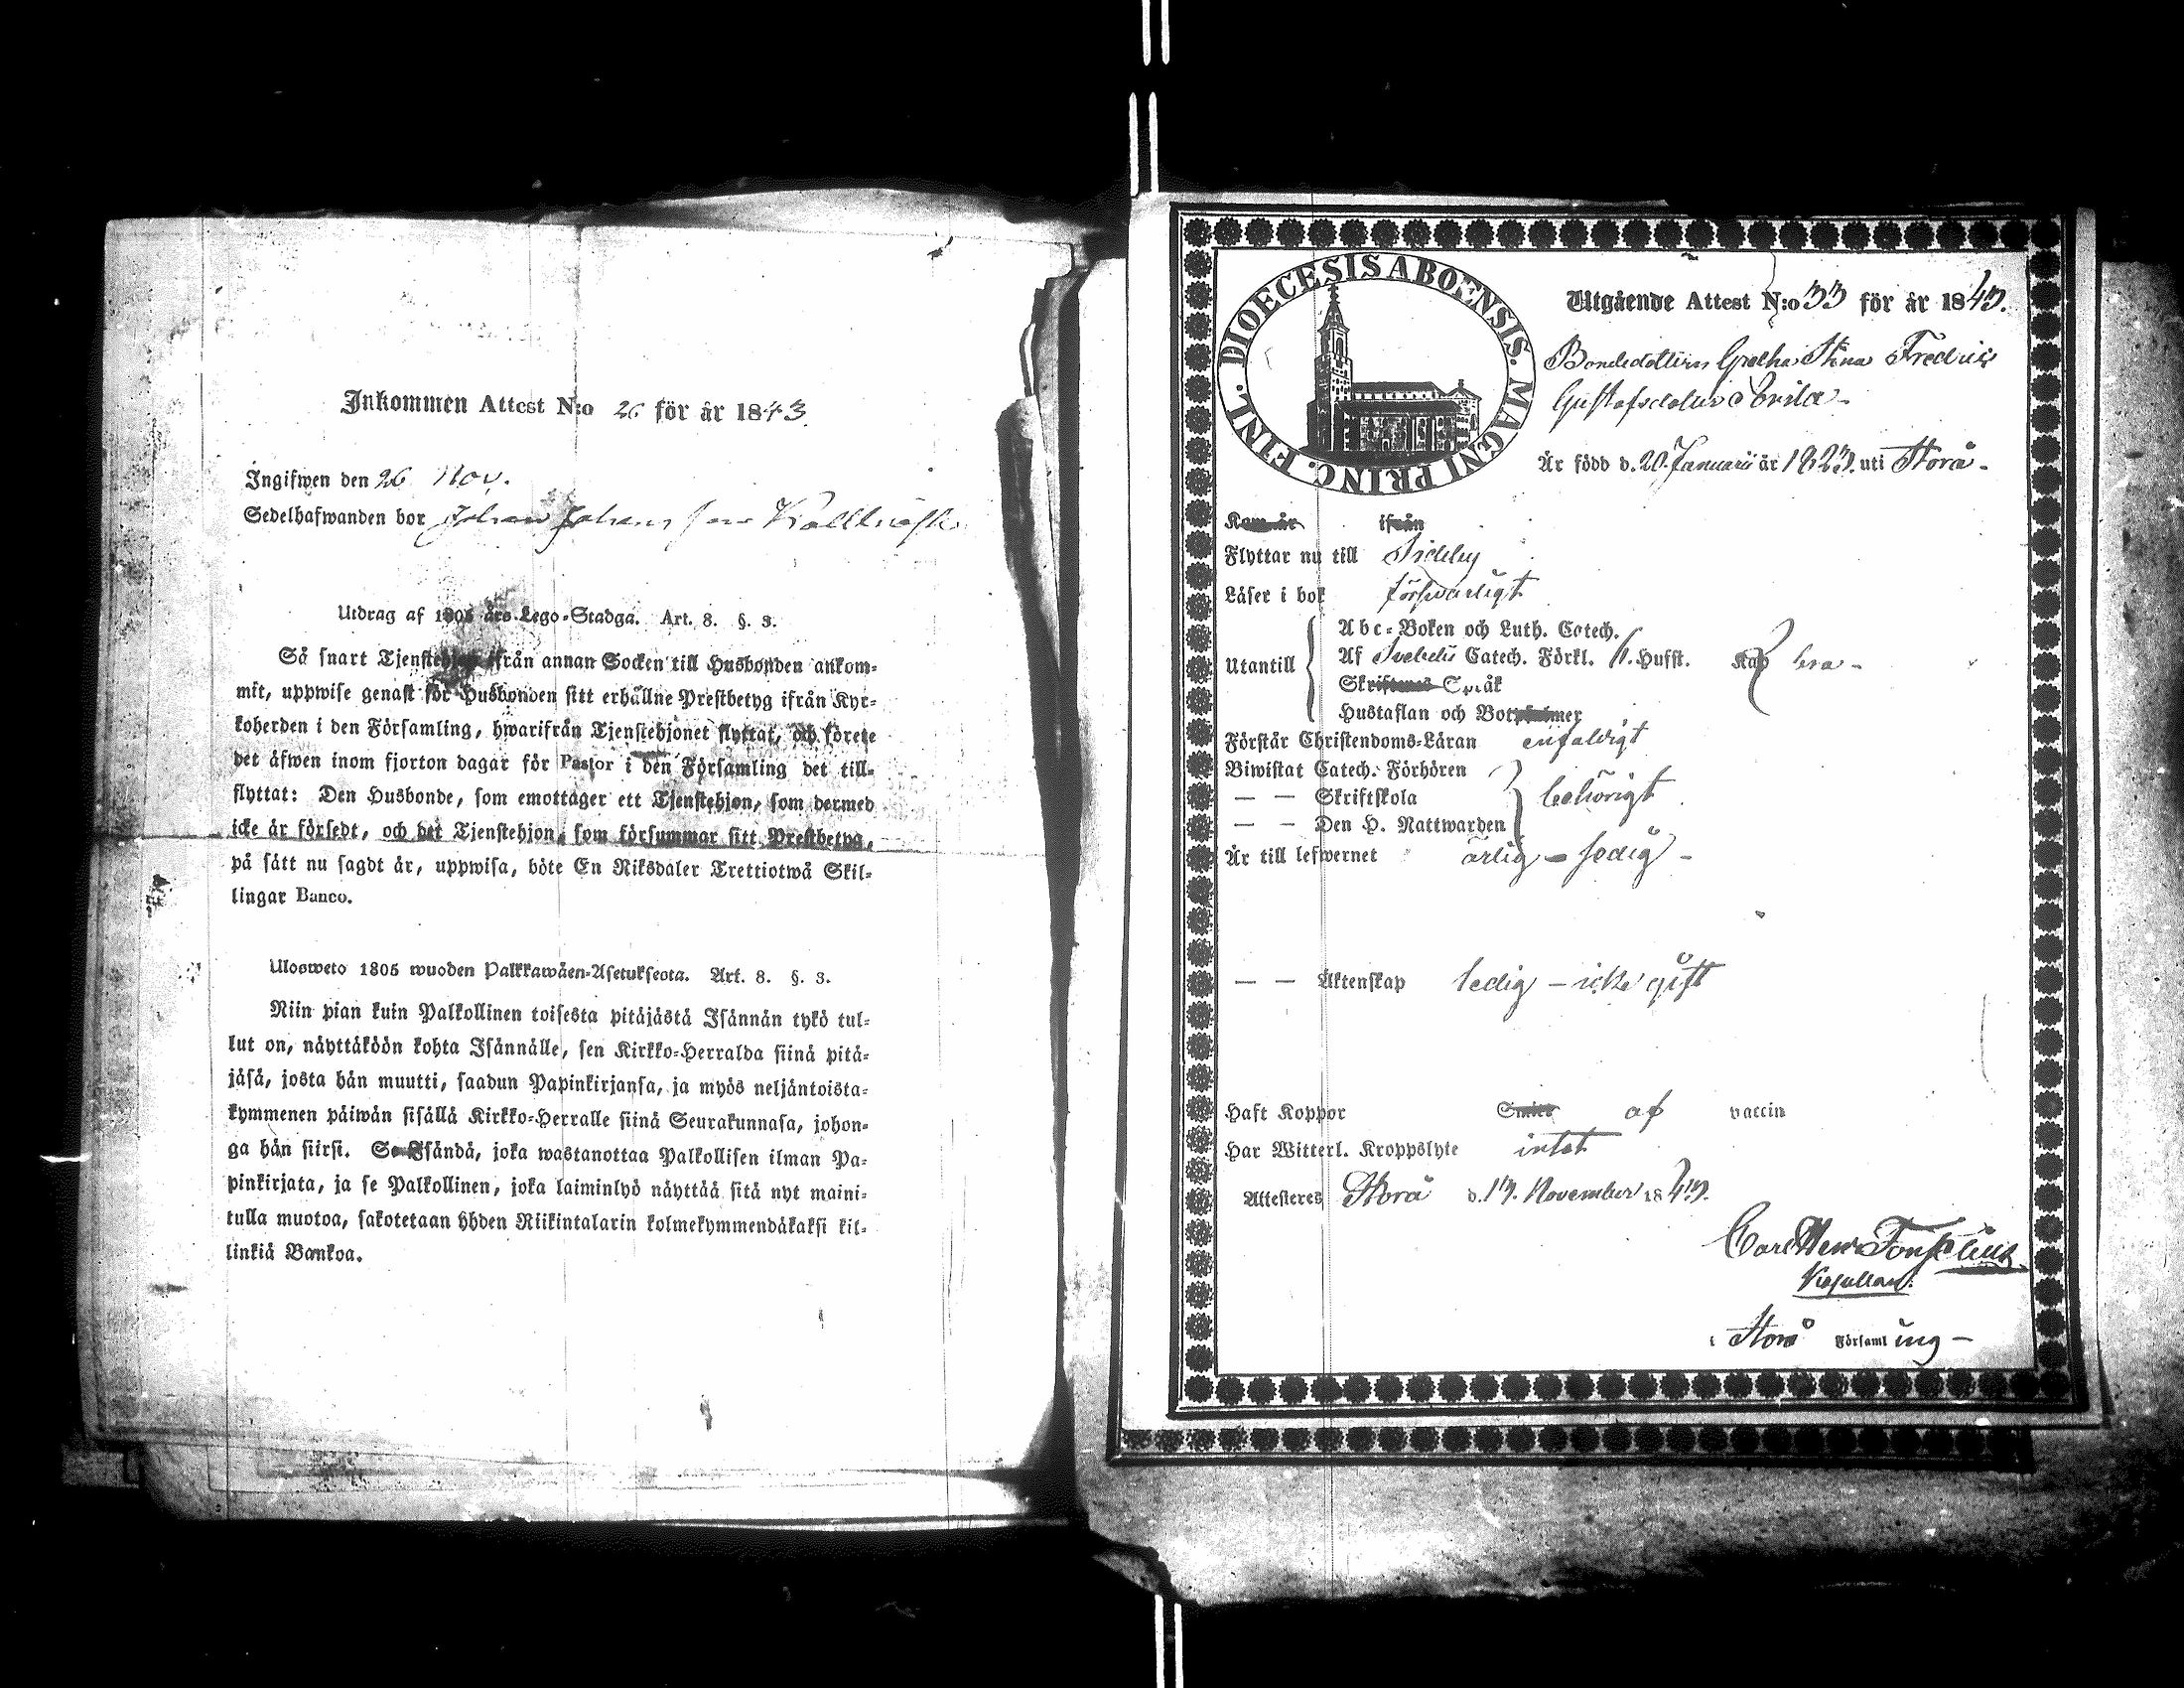 Inkommen Attest N:o 26 för år 1843.
Ingifwen den 26 Nov.
Sedelhafwanden bor Johan Johans son
Utdrag af 1805 års Lego-Stadga. Art. 8. §. 3.
Så snart Tjenstehjon ifrån annan Socken till Husbonden ankom-
mit, uppwise genast för Husbonden sitt erhållne Prestbetyg ifrån Kyr-
koherden i den Församling, hwarifrån Tjenstehjonet flyttat, och förete
det äfwen inom fjorton dagar för Pastor i den Församling det till-
flyttat: Den Husbonde, som emottager ett Tjenstehjon, som dermed
icke är försedt, och det Tjenstehjon, som försummar sitt Prestbetyg,
på sätt nu sagdt är, uppwisa, böte En Riksdaler Trettiotwå Skil-
lingar Banco.
Ulosweto 1805 wuoden Palkkawäen-Asetuksesta. Art. 8. §. 3.
Niin pian kuin Palkollinen toisesta pitäjästä Isännän tykö tul-
lut on, näyttäköön kohta Isännälle, sen Kirkko-Herralda siinä pitä-
jäsä, josta hän muutti, saadun Papinkirjansa, ja myös neljäntoista-
kymmenen päiwän sisällä Kirkko-Herralle siinä Seurakunnasa, johon-
ga hän siirsi. Se Isändä, joka wastanottaa Palkollisen ilman Pa-
pinkirjata, ja se Palkollinen, joka laiminlyö näyttää sitä nyt maini-
tulla muotoa, sakotetaan yhden Riikintalarin kolmekymmendäkaksi kil-
linkiä Bankoa.
DIOECESIS ABOENSIS. MAGNI PRINC. FINL.
Utgående Attest N:o 33 för år 1843.
Bondedottren Gretha Stina Fredrica
Gustafsdotter
Är född d. 20. Januarii år 1823. uti Storå -
Kom år ifrån
Flyttar nu till Sideby
Läser i bok försvarligt
Utantill
Abc-Boken och Luth. Catech.
Af Svebelii Catech. Förkl. 6. Hufst. Kap bra -
Skriftenes Språk
Hustaflan och Botpsalmer
Förstår Christendoms-Läran enfaldigt
Biwistat Catech. Förhören
— — Skriftskola behörigt
— — Den H. Nattwarden
Är till lefwernet ärlig - sedig -
— — Äktenskap ledig - icke gift
Haft Koppor Smitt af vaccin
Har Witterl. Kroppslyte intet
Attesteres Storå d. 13. November 1843.
Carl Henr Fonselius
i Storå Församl ing -